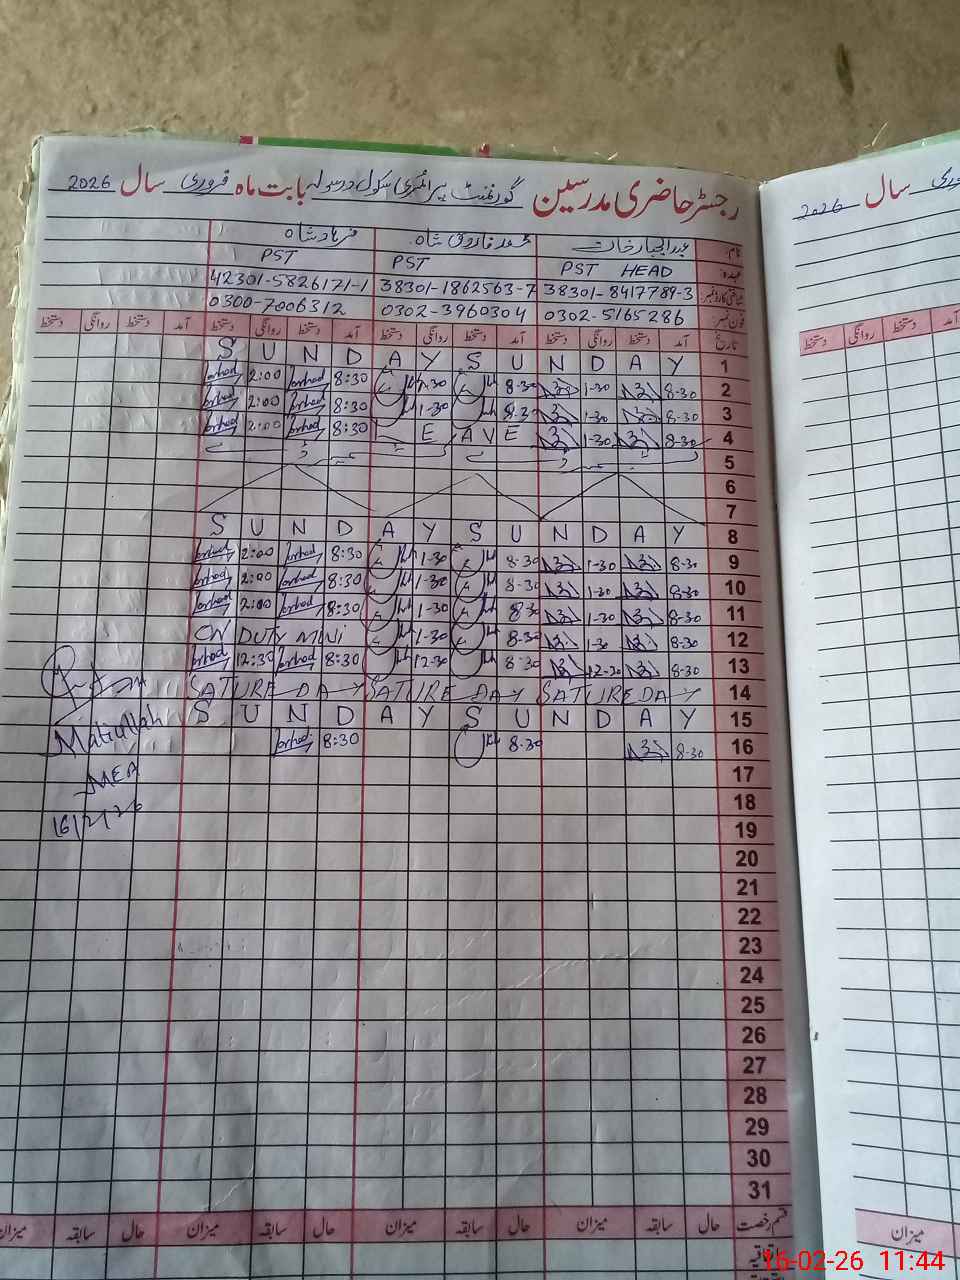 رجسٹر حاضری مدرسین گورنمنٹ پرائمری سکول درسولہ بابت ماہ فروری سال 2026
نام: عبدالجبار خان محمد فاروق شاہ فرہاد شاہ
عہدہ: PST HEAD PST PST
شناختی کارڈ نمبر: 38301-8417789-3 38301-1862563-7 42301-5826171-1
فون نمبر: 0302-5165286 0302-3960304 0300-7006312
تاریخ آمد دستخط روانگی دستخط آمد دستخط روانگی دستخط آمد دستخط روانگی دستخط آمد دستخط روانگی دستخط
S U N D A Y S U N D A Y 1
Farhad 2:00 Farhad 8:30 1-30 8-30 1-30 8-30 2
Farhad 2:00 Farhad 8:30 1-30 8-30 1-30 8-30 3
Farhad 2:00 Farhad 8:30 L E A V E 1-30 8-30 4
5
6
7
S U N D A Y S U N D A Y 8
Farhad 2:00 Farhad 8:30 1-30 8-30 1-30 8-30 9
Farhad 2:00 Farhad 8:30 1-30 8-30 1-30 8-30 10
Farhad 2:00 Farhad 8:30 1-30 8-30 1-30 8-30 11
ON DUTY 1-30 8-30 1-30 8-30 12
Farhad 12:30 Farhad 8:30 12-30 8-30 12-30 8-30 13
SATUREDAY SATUREDAY SATUREDAY 14
S U N D A Y S U N D A Y 15
Farhad 8:30 8-30 8-30 16
Matiullah
MEA
16/2/26
17
18
19
20
21
22
23
24
25
26
27
28
29
30
31
قسم رخصت حال سابقہ میزان حال سابقہ میزان حال سابقہ میزان حال سابقہ میزان
سال 2026
دستخط روانگی دستخط
میزان
16-02-26 11:44